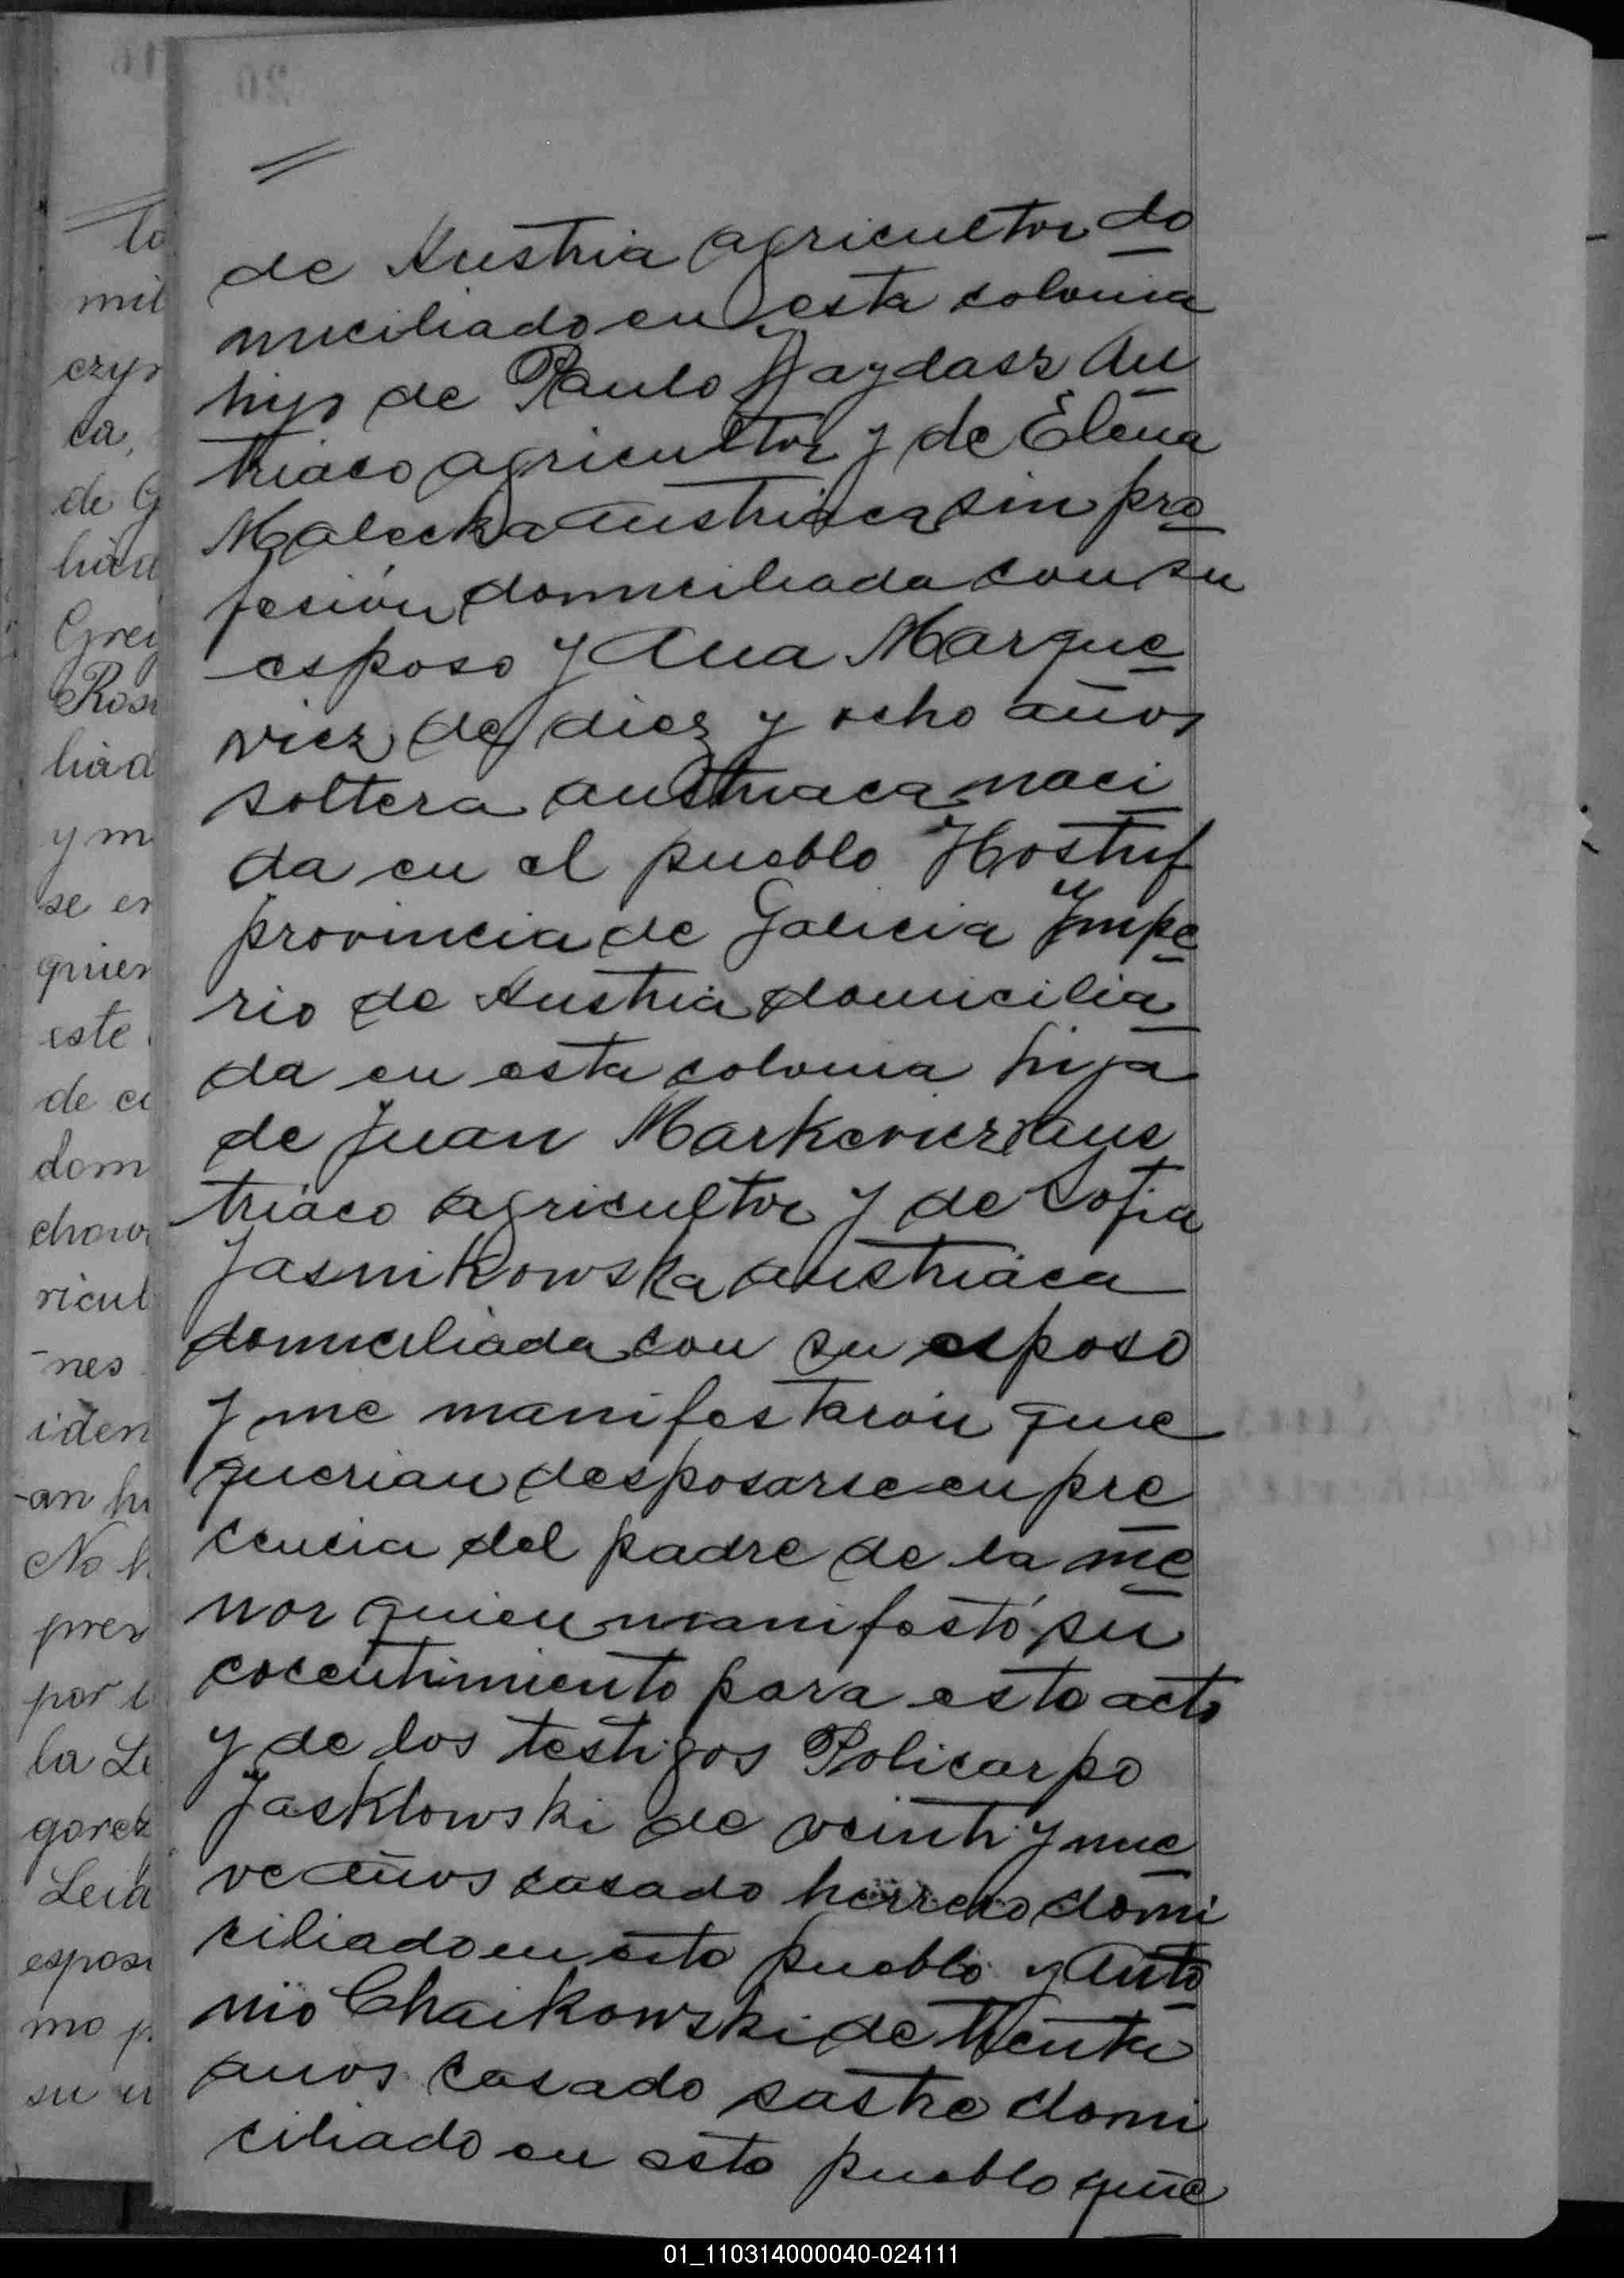 de Austria agricultor do
miciliado en esta colonia
hijo de Paulo Haydasz Au
triaco agricultor y de Elena
Malecka austriaca sin pro
fesión domiciliada con su
esposo y Ana Marque
vicz de diez y ocho años
soltera austriaca naci
da en el pueblo Hostuf
provincia de Galicia Ympe
rio de Austria domicilia
da en esta colonia hija
de Juan Markevicz aus
triaco agricultor y de Sofia
Jasnikowska austriaca
domiciliada con su esposo
y me manifestarón que
querian desposarse en pre
cencia del padre de la me
nor quien manifestó su
cocentimiento para esto acto
y de los testigos Policarpo
Jasklowski de veinti y nue
ve años casado herrero domi
ciliado en esto pueblo y Anto
nio Chaikowski de trenta
anos casado sastre domi
ciliado en esto pueblo que
to
mil
czyn
ca,
de G
liad
Greg
Rosa
liad
y m
se en
quien
este
de ci
dom
chow
ricul
nes
iden
an hi
No h
pres
por l
la Le
gorek
Leid
espos
mo p
su
01_110314000040-024111